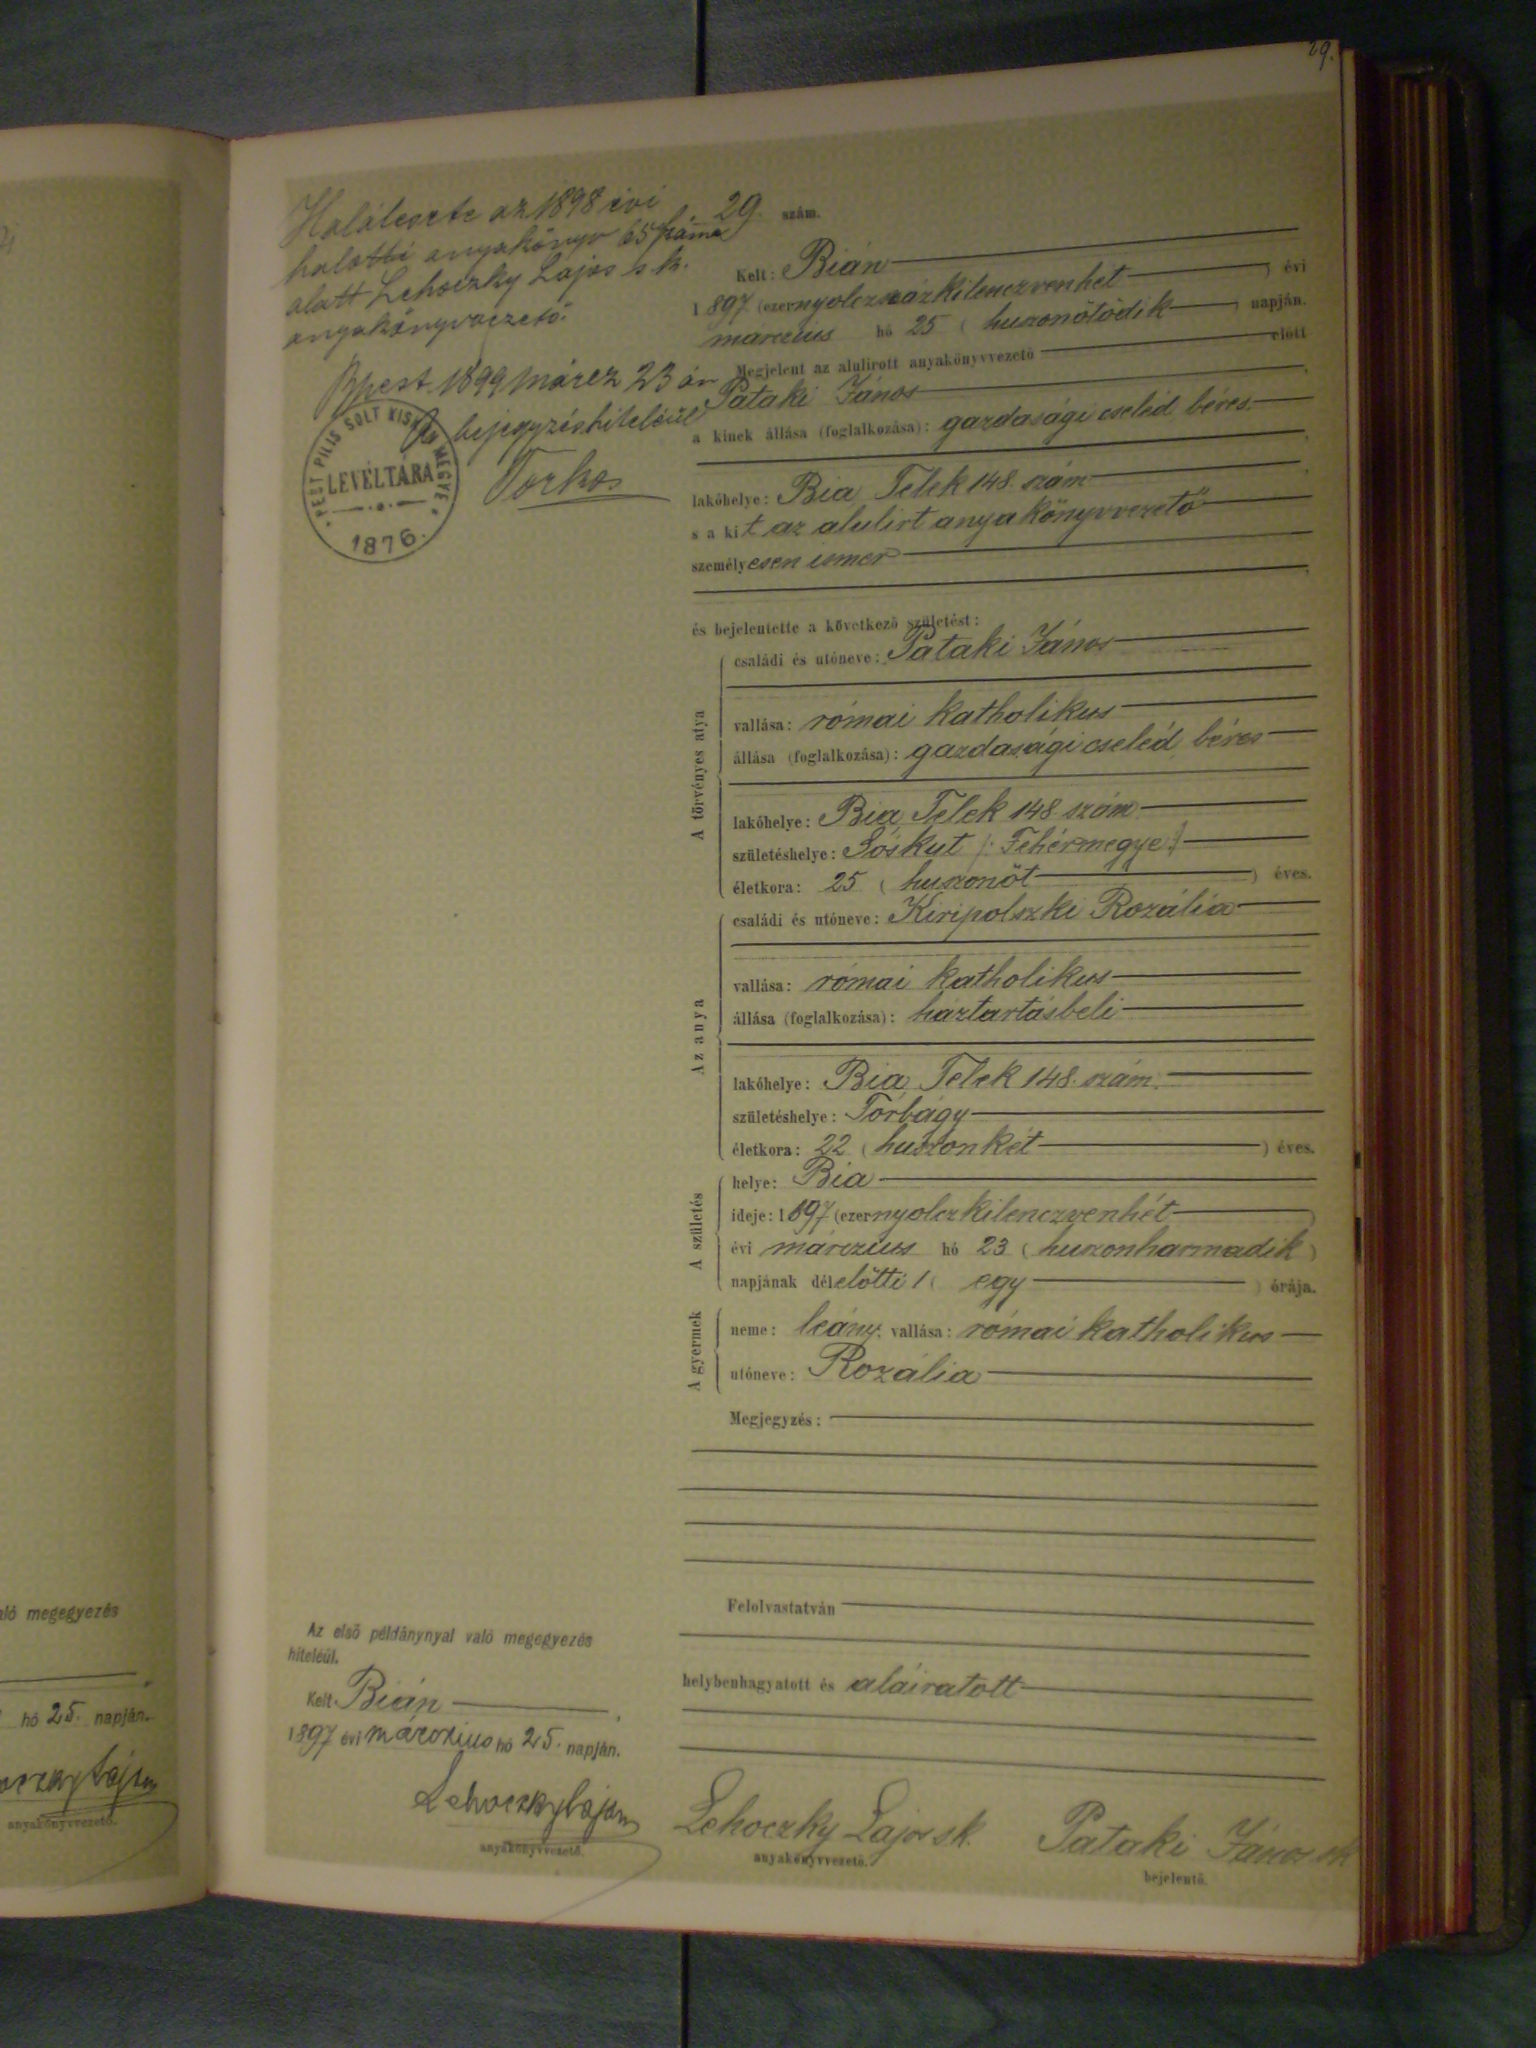 29.
Halálesete az 1898 évi
halotti anyakönyv 65 száma
alatt Lehoczky Lajos s k.
anyakönyvvezető.
Bpest 1899 márcz 23 án
A bejegyzés hiteléül
PEST PILIS SOLT KISKUN MEGYE
LEVÉLTÁRA
1876.
29. szám.
Kelt: Bián
1897 (ezernyolczszázkilenczvenhét ) évi
márczius hó 25 ( huszonötödik ) napján.
Megjelent az alulirott anyakönyvvezető előtt
Pataki János
a kinek állása (foglalkozása): gazdasági cseléd béres
lakóhelye: Bia Telek 148. szám
s a kit az alulirt anyakönyvvezető
személyesen ismer
és bejelentette a következő születést:
A törvényes atya
családi és utóneve: Pataki János
vallása: római katholikus
állása (foglalkozása): gazdasági cseléd béres
lakóhelye: Bia Telek 148 szám
születéshelye: Sóskut /: Fehérmegye :/
életkora: 25 ( huszonöt ) éves.
Az anya
családi és utóneve: Kiripolszki Rozália
vallása: római katholikus
állása (foglalkozása): háztartásbeli
lakóhelye: Bia Telek 148. szám.
születéshelye: Torbágy
életkora: 22 ( huszonkét ) éves.
A születés
helye: Bia
ideje: 1897 (ezernyolczkilenczvenhét )
évi márczius hó 23 ( huszonharmadik )
napjának délelőtti 1 ( egy ) órája.
A gyermek
neme: leány; vallása: római katholikus
utóneve: Rozália
Megjegyzés:
Felolvastatván
helybenhagyatott és aláiratott
Az első példánynyal való megegyezés
hiteléül.
Kelt Bián
1897 évi márczius hó 25. napján.
Lehoczky Lajos
anyakönyvvezető.
Lehoczky Lajos sk.
anyakönyvvezető.
Pataki János sk
bejelentő.
való megegyezés
hó 25. napján.
anyakönyvvezető.